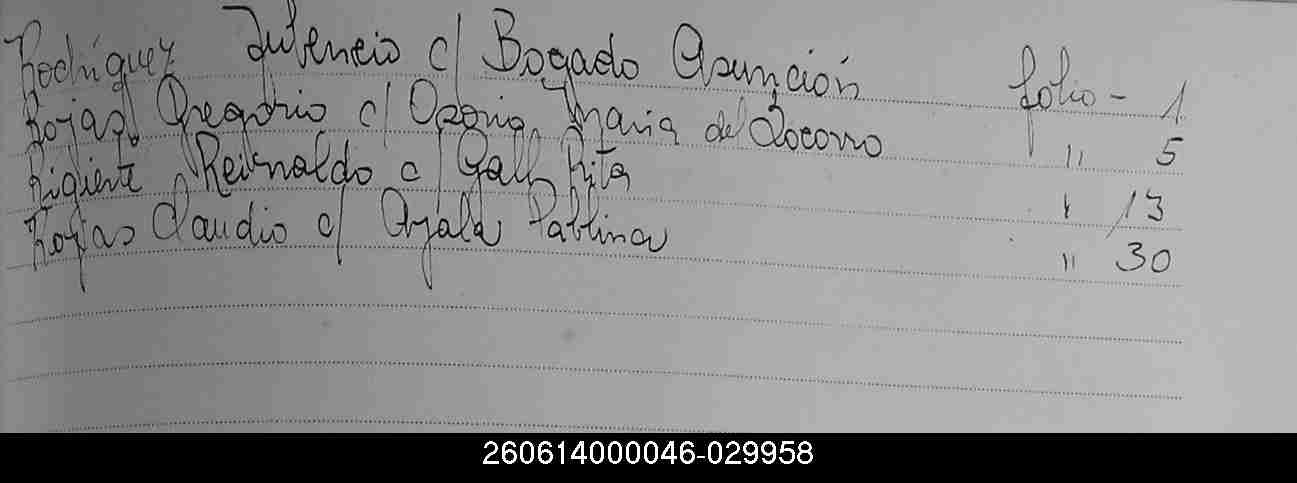 Rodríguez Juvencio c/ Bogado Asunción folio - 1
Rojas Gregorio c/ Osorio María del Socorro " 5
Reinaldo c/ Rita " 13
Rojas Claudio c/ Ayala Pablina " 30
260614000046-029958